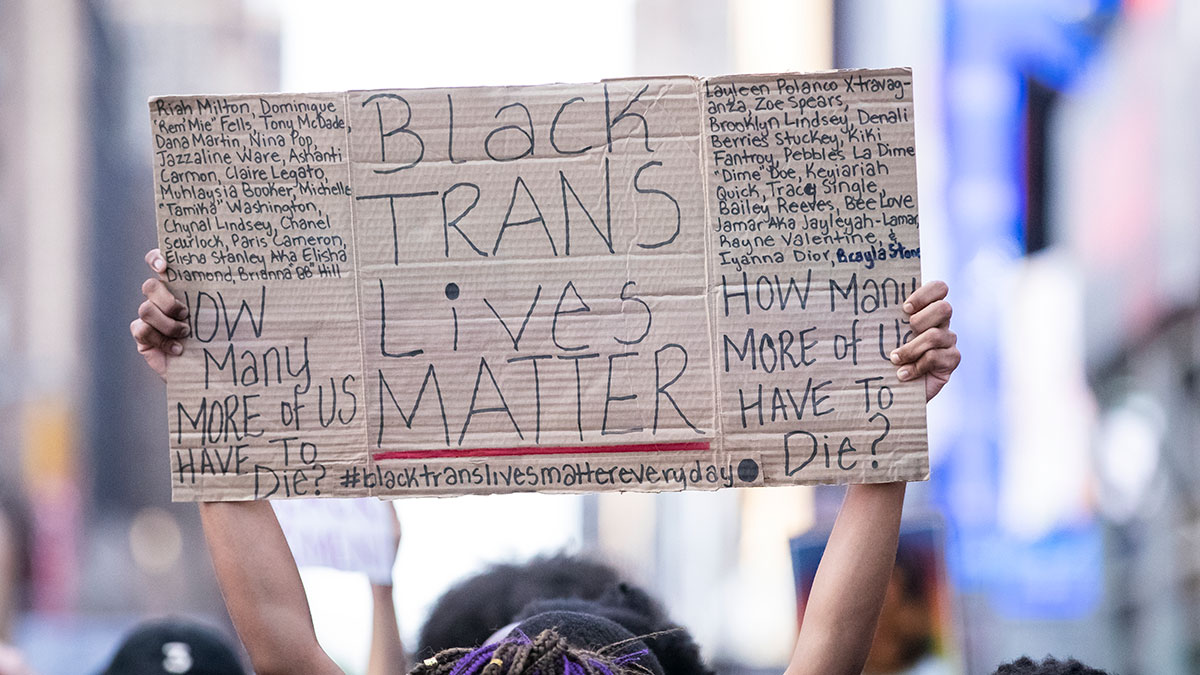 Riah Milton, Dominique
"Rem'Mie" Fells, Tony McDade,
Dana Martin, Nina Pop,
Jazzaline Ware, Ashanti
Carmon, Claire Legato,
Muhlaysia Booker, Michelle
"Tamika" Washington,
Chynal Lindsey, Chanel
Scurlock, Paris Cameron,
Elisha Stanley Aka Elisha
Diamond, Brianna "BB" Hill
HOW
Many
MORE of US
HAVE TO
Die?
Black
TRANS
Lives
MATTER
#blacktranslivesmattereveryday
Layleen Polanco Xtravag-
anza, Zoe Spears,
Brooklyn Lindsey, Denali
Berries Stuckey, Kiki
Fantroy, Pebbles La Dime
"Dime" Doe, Keyiariah
Quick, Tracy Single,
Bailey Reeves, Bee Love
Jamar Aka Jayleyah-Lamar,
Rayne Valentine, &
Iyanna Dior, Brayla Stone
HOW Many
MORE of US
HAVE TO
Die?
3